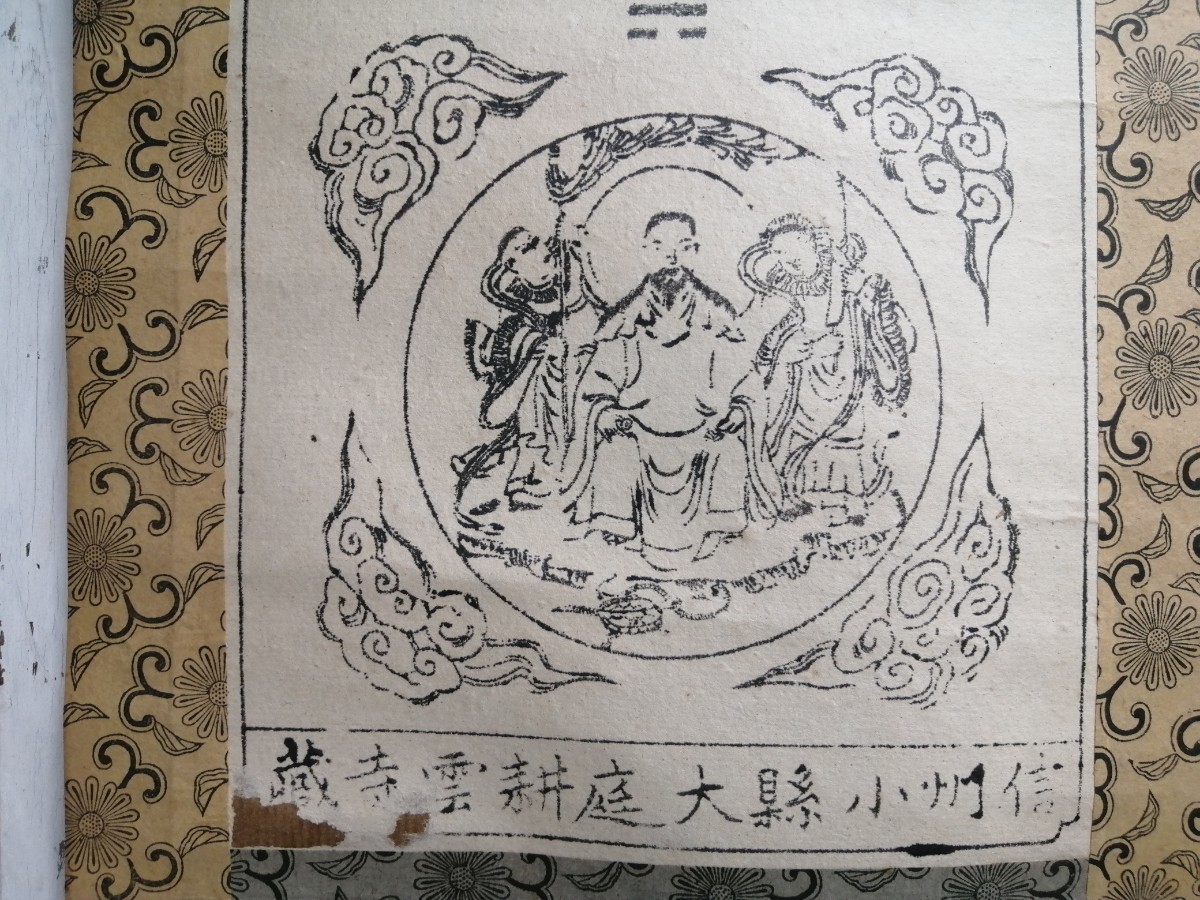 信州小縣大庭耕雲寺藏